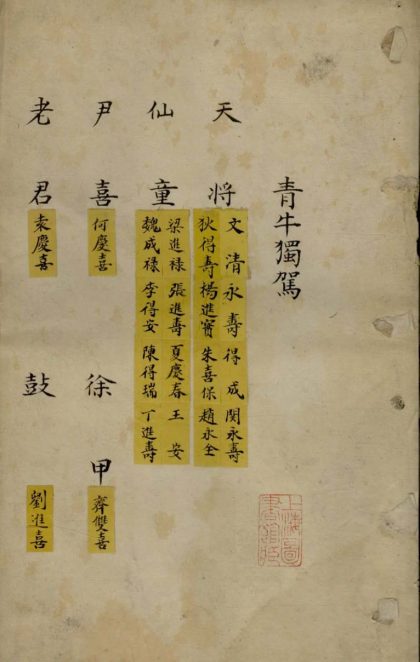 青牛獨駕
天將
文 清永壽 得成 閔永壽
狄得壽 楊進寳 朱喜保 趙永全
仙童
梁進禄 張進壽 夏慶春 王安
魏成禄 李得安 陳得瑞 丁進壽
尹喜 何慶喜
徐甲 齊雙喜
老君 袁慶喜
鼓 劉進喜
上海圖
書館藏